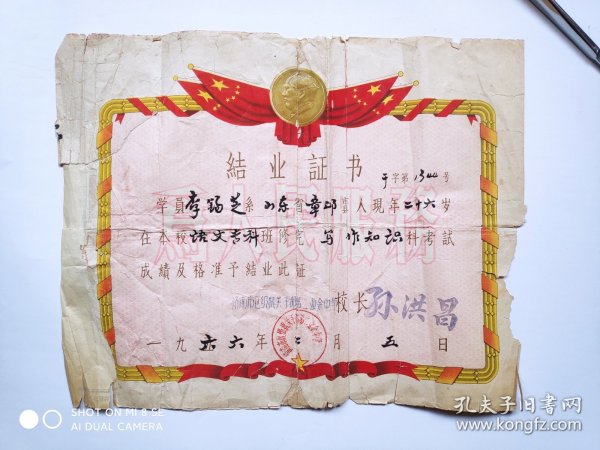 結业証书
于字第1344号
学員李錫芝系山东省章邱县人現年二十六岁
在本校语文专科班修完写作知识科考試
成績及格准予結业此証
校长孙洪昌
一九六六年二月五日
SHOT ON MI 8 SE
AI DUAL CAMERA
孔夫子旧书网
www.kongfz.com